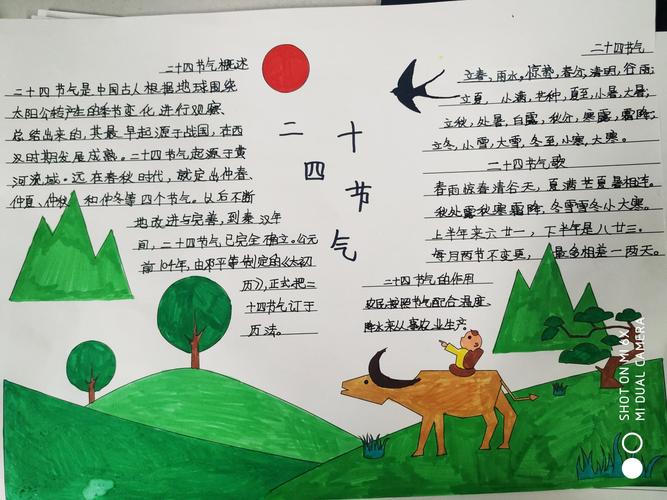 二十四节气概述
二十四节气是中国古人根据地球围绕
太阳公转产生的季节变化,进行观察、
总结出来的,其最早起源于战国,在西
汉时期发展成熟。二十四节气起源于黄
河流域。远在春秋时代,就定出仲春、
仲夏、仲秋和仲冬等四个节气。以后不断
地改进与完善,到秦汉年
间,二十四节气已完全确立。公元
前104年,由邓平等制定的《太初
历》,正式把二
十四节气订于
历法。
二十四节气
二十四节气
立春,雨水,惊蛰,春分,清明,谷雨;
立夏,小满,芒种,夏至,小暑,大暑;
立秋,处暑,白露,秋分,寒露,霜降;
立冬,小雪,大雪,冬至,小寒,大寒。
二十四节气歌
春雨惊春清谷天,夏满芒夏暑相连。
秋处露秋寒霜降,冬雪雪冬小大寒。
上半年来六廿一,下半年是八廿三。
每月两节不变更,最多相差一两天。
二十四节气的作用
农民按照节气配合温度、
降水来从事农业生产。
SHOT ON MI 6X
MI DUAL CAMERA